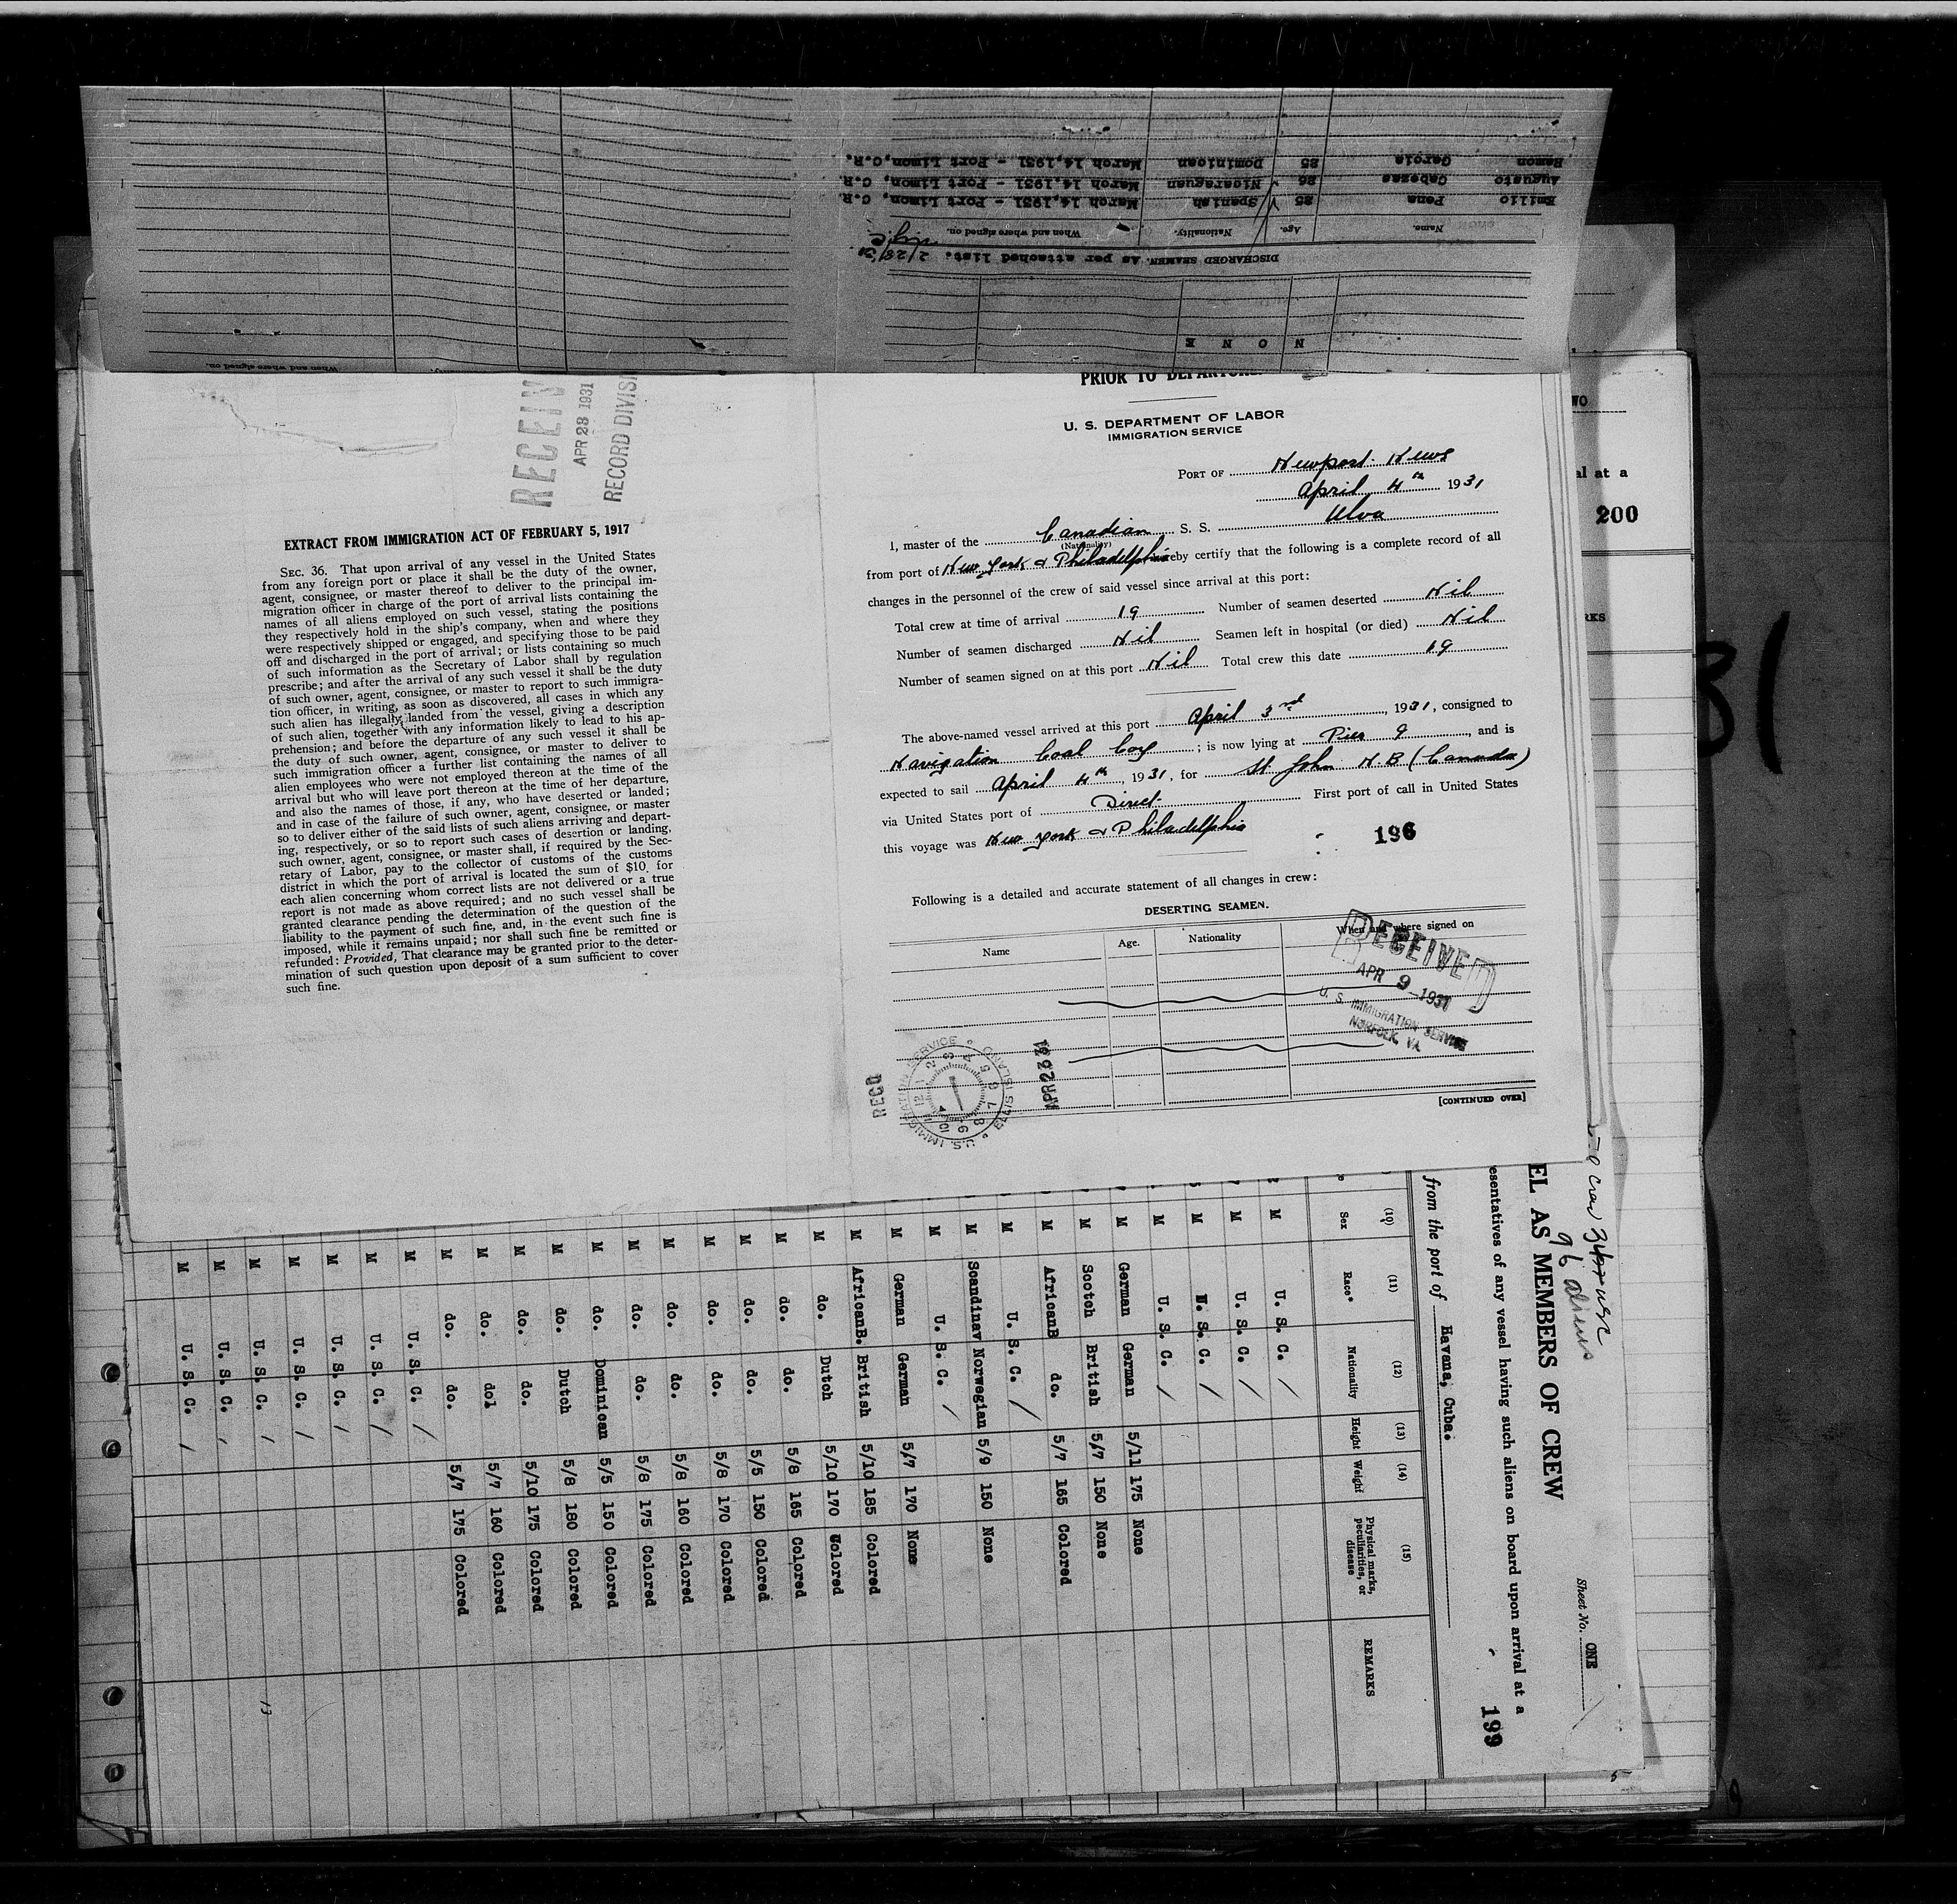 Ramon Garcia 25 Dominican March 14,1931 - Port Limon,C.R.
Augusto Cabezas 26 Nicaraguan March 14,1931 - Port Limon, C.R.
Emilio Pena 25 Spanish March 14,1931 - Port Limon, C.R.
Name. Age. Nationality. When and where signed on.
DISCHARGED SEAMEN. As per attached list.
N O N E
When and where signed on.
RECEIV
APR 28 1931
RECORD DIVISI
EXTRACT FROM IMMIGRATION ACT OF FEBRUARY 5, 1917
SEC. 36. That upon arrival of any vessel in the United States
from any foreign port or place it shall be the duty of the owner,
agent, consignee, or master thereof to deliver to the principal im-
migration officer in charge of the port of arrival lists containing the
names of all aliens employed on such vessel, stating the positions
they respectively hold in the ship's company, when and where they
were respectively shipped or engaged, and specifying those to be paid
off and discharged in the port of arrival; or lists containing so much
of such information as the Secretary of Labor shall by regulation
prescribe; and after the arrival of any such vessel it shall be the duty
of such owner, agent, consignee, or master to report to such immigra-
tion officer, in writing, as soon as discovered, all cases in which any
such alien has illegally landed from the vessel, giving a description
of such alien, together with any information likely to lead to his ap-
prehension; and before the departure of any such vessel it shall be
the duty of such owner, agent, consignee, or master to deliver to
such immigration officer a further list containing the names of all
alien employees who were not employed thereon at the time of the
arrival but who will leave port thereon at the time of her departure,
and also the names of those, if any, who have deserted or landed;
and in case of the failure of such owner, agent, consignee, or master
so to deliver either of the said lists of such aliens arriving and depart-
ing, respectively, or so to report such cases of desertion or landing,
such owner, agent, consignee, or master shall, if required by the Sec-
retary of Labor, pay to the collector of customs of the customs
district in which the port of arrival is located the sum of $10 for
each alien concerning whom correct lists are not delivered or a true
report is not made as above required; and no such vessel shall be
granted clearance pending the determination of the question of the
liability to the payment of such fine, and, in the event such fine is
imposed, while it remains unpaid; nor shall such fine be remitted or
refunded: Provided, That clearance may be granted prior to the deter-
mination of such question upon deposit of a sum sufficient to cover
such fine.
PRIOR TO DEPARTURE
U. S. DEPARTMENT OF LABOR
IMMIGRATION SERVICE
PORT OF Newport News
April 4th 1931
I, master of the Canadian S. S. Ulva
(Nationality)
from port of New York & Philadelphia hereby certify that the following is a complete record of all
changes in the personnel of the crew of said vessel since arrival at this port:
Total crew at time of arrival 19 Number of seamen deserted Nil
Number of seamen discharged Nil Seamen left in hospital (or died) Nil
Number of seamen signed on at this port Nil Total crew this date 19
The above-named vessel arrived at this port April 3rd, 1931, consigned to
Navigation Coal Coy; is now lying at Pier 9, and is
expected to sail April 4th, 1931, for St John N.B (Canada)
via United States port of Direct First port of call in United States
this voyage was New York & Philadelphia
196
Following is a detailed and accurate statement of all changes in crew:
DESERTING SEAMEN.
Name Age. Nationality When and where signed on
RECEIVED
APR 9 - 1931
U. S. IMMIGRATION SERVICE
NORFOLK, VA.
RECD
U.S. IMMIGRATION SERVICE ELLIS ISLAND
APR 23 31
[CONTINUED OVER]
WO
al at a
200
RKS
31
Sheet No. ONE
96 aliens
EL AS MEMBERS OF CREW
esentatives of any vessel having such aliens on board upon arrival at a
199
from the port of Havana, Cuba.
(10) (11) (12) (13) (14) (15)
Sex Race* Nationality Height Weight Physical marks, peculiarities, or disease REMARKS
M U. S. C. /
M U. S. C. /
M U. S. C. /
M U. S. C. /
M German German 5/11 175 None
M Scotch British 5/7 150 None
M AfricanB do. 5/7 165 Colored
M U. S. C. /
M Scandinav Norwegian 5/9 150 None
M U. S. C. /
M German German 5/7 170 None
M AfricanB. British 5/10 185 Colored
M do. Dutch 5/10 170 Colored
M do. do. 5/8 165 Colored
M do. do. 5/5 150 Colored
M do. do. 5/8 170 Colored
M do. do. 5/8 160 Colored
M do. do. 5/8 175 Colored
M do. Dominican 5/5 150 Colored
M do. Dutch 5/8 180 Colored
M do. do. 5/10 175 Colored
M do. do1 5/7 160 Colored
M do. do. 5/7 175 Colored
M U. S. C. /
M U. S. C. /
M U. S. C. /
M U. S. C. /
M U. S. C. /
M U. S. C. /
M U. S. C. /
13